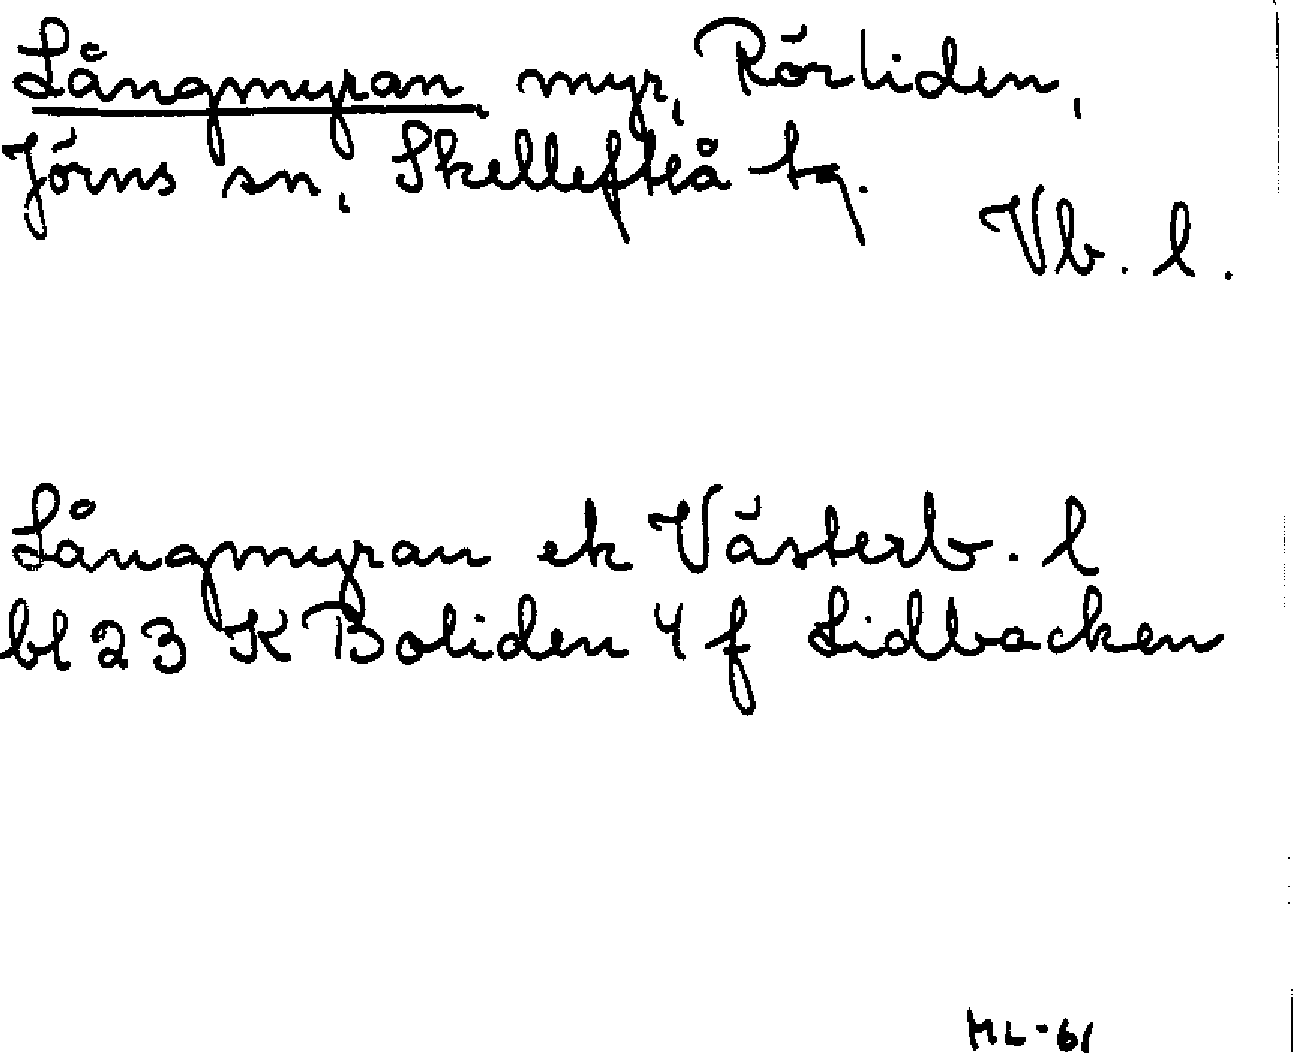 Långmyran, myr, Rörliden,
Jörns sn, Skellefteå tg.
Vb. l.
Långmyran ek Västerb. l
bl 23 K Boliden 4 f Lidbacken
ML-61